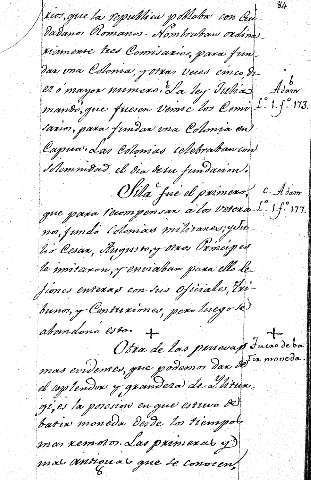 84
rios, que la republica poblaba con Ciu
dadanos Romanos. Nombraban ordina
riamente tres Comisarios, para fun
dar una Colonia, y otras veces cinco di
ez ó mayor numero. La ley Julia
mandó, que fuesen veinte los Comi
sarios, para fundar una Colonia en
Capua. Las colonias celebraban con
solemnidad el dia de su fundacion.
b
Adam
L.º 1. f.º 173.
Sila fue el primero,
que para recompensar á los vetera
nos, fundó colonias militares, y Ju
lio Cesar, Augusto, y otros Principes
le imitaron, y enviaban para ello le
jiones enteras con sus oficiales, Tri
bunos, y Centuriones, pero luego se
abandonó esto.
c. Adam
L.º 1. f.º 177.
Otra de las pruevas
mas evidentes, que podemos dar de
el esplendor y grandeza de
es la posesion en que estuvo de
batir moneda desde los tiempos
mas remotos. Las primeras y
mas antiguas que se conocen,
de ba
tia moneda.